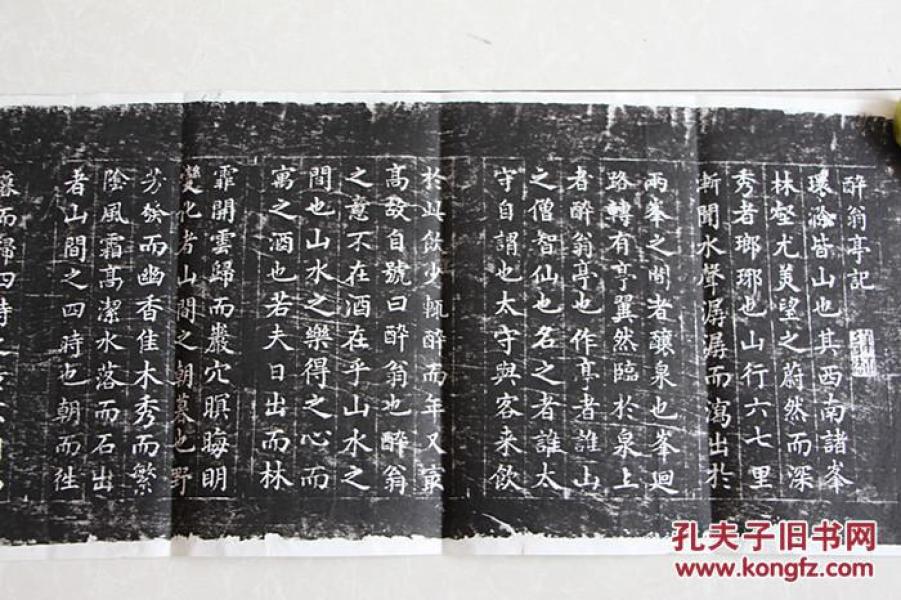 醉翁亭記
環滁皆山也其西南諸峯
林壑尤美望之蔚然而深
秀者瑯琊也山行六七里
漸聞水聲潺潺而瀉出於
兩峯之間者釀泉也峯迴
路轉有亭翼然臨於泉上
者醉翁亭也作亭者誰山
之僧智仙也名之者誰太
守自謂也太守與客来飲
於此飲少輒醉而年又寂
高故自號曰醉翁也醉翁
之意不在酒在乎山水之
間也山水之樂得之心而
寓之酒也若夫日出而林
霏開雲歸而巖穴暝晦明
變化者山間之朝暮也野
芳發而幽香佳木秀而繁
陰風霜高潔水落而石出
者山間之四時也朝而往
暮而歸四時之
孔夫子旧书网
www.kongfz.com